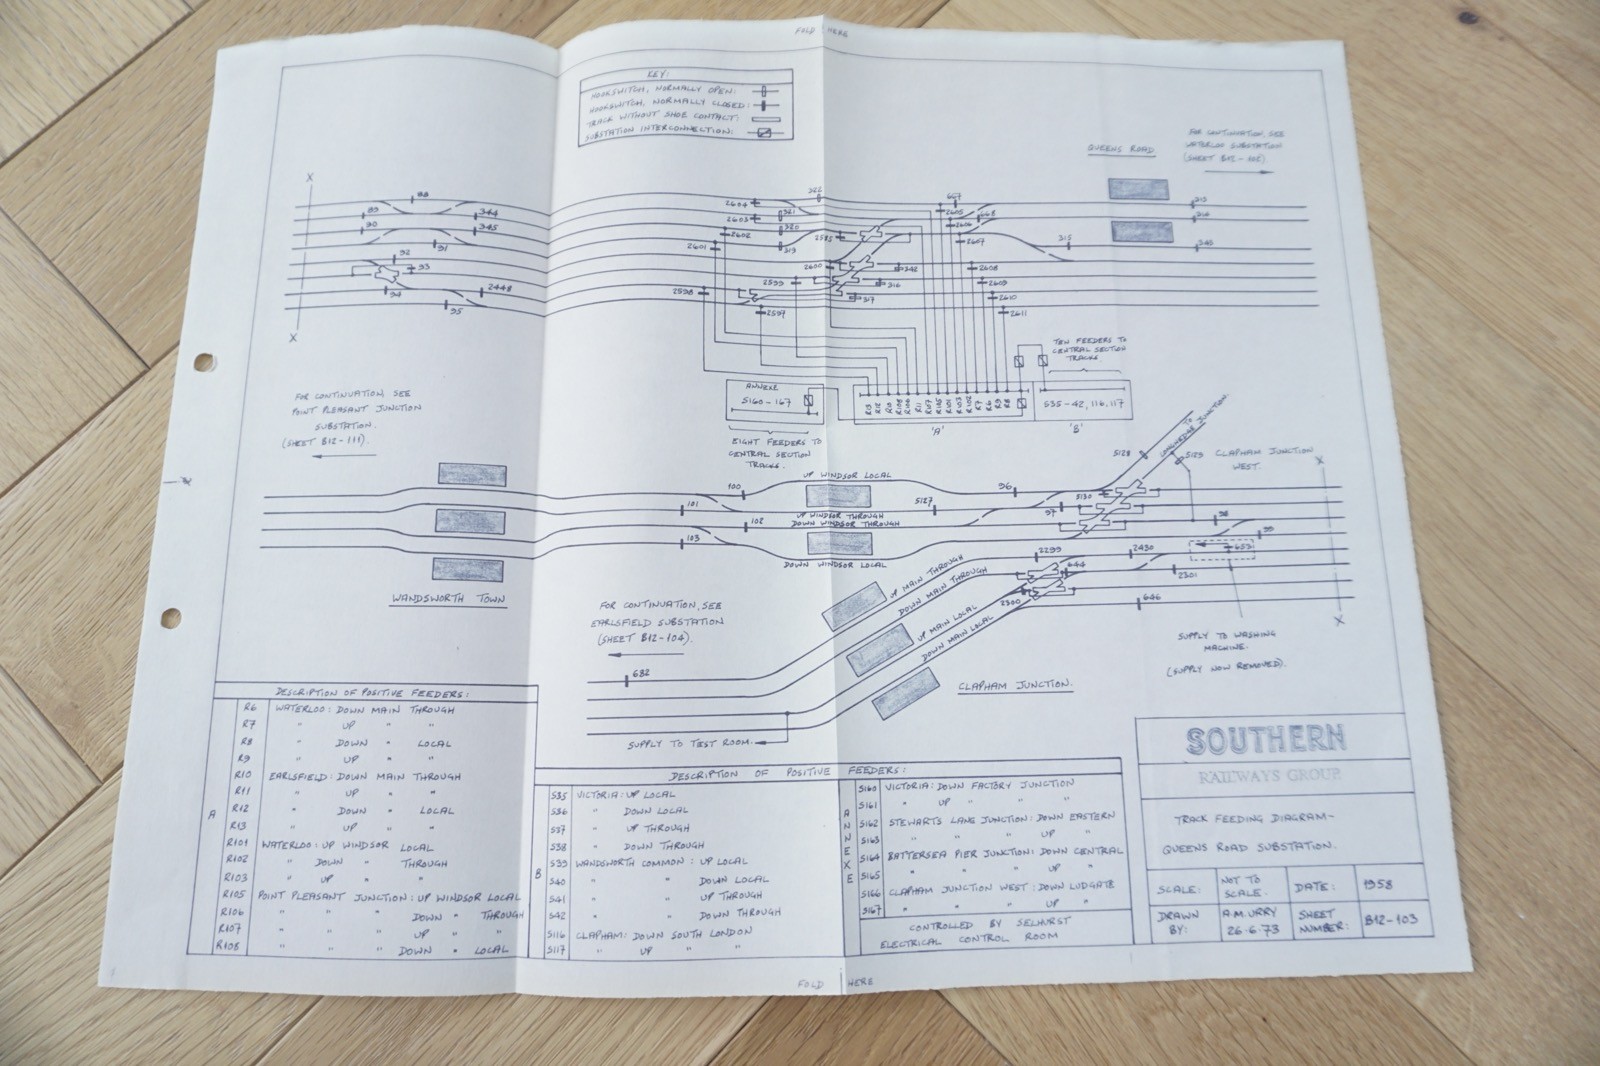 FOLD HERE
KEY:
HOOKSWITCH, NORMALLY OPEN:
HOOKSWITCH, NORMALLY CLOSED:
TRACK WITHOUT SHOE CONTACT:
SUBSTATION INTERCONNECTION:
QUEENS ROAD
FOR CONTINUATION, SEE
WATERLOO SUBSTATION
(SHEET B12-102)
X
88
89
90
344
345
91
92
93
94
95
2448
X
2604
2603
2602
2601
2600
2599
2598
2597
322
321
320
319
2585
342
316
317
667
2605
2606
668
2607
2608
2609
2610
2611
315
340
TEN FEEDERS TO
CENTRAL SECTION
TRACKS.
ANNEXE
S160-167
R13
R12
R10
R108
R106
R11
R107
R105
R101
R103
R102
R7
R6
R9
R8
S35-42, 116, 117
'A'
'B'
EIGHT FEEDERS TO
CENTRAL SECTION
TRACKS.
FOR CONTINUATION, SEE
POINT PLEASANT JUNCTION
SUBSTATION.
(SHEET B12-111).
UP WINDSOR LOCAL
UP WINDSOR THROUGH
DOWN WINDSOR THROUGH
DOWN WINDSOR LOCAL
100
101
102
103
S127
96
97
S128
S129
S130
TO
LONGHEDGE JUNCTION.
CLAPHAM JUNCTION
WEST.
X
98
99
653
2299
2430
644
2301
2300
646
X
WANDSWORTH TOWN
FOR CONTINUATION, SEE
EARLSFIELD SUBSTATION
(SHEET B12-104).
UP MAIN THROUGH
DOWN MAIN THROUGH
UP MAIN LOCAL
DOWN MAIN LOCAL
CLAPHAM JUNCTION.
632
SUPPLY TO TEST ROOM.
SUPPLY TO WASHING
MACHINE.
(SUPPLY NOW REMOVED).
DESCRIPTION OF POSITIVE FEEDERS:
A
R6 WATERLOO: DOWN MAIN THROUGH
R7 " UP " "
R8 " DOWN " LOCAL
R9 " UP " "
R10 EARLSFIELD: DOWN MAIN THROUGH
R11 " UP " "
R12 " DOWN " LOCAL
R13 " UP " "
R101 WATERLOO: UP WINDSOR LOCAL
R102 " DOWN " THROUGH
R103 " UP " "
R105 POINT PLEASANT JUNCTION: UP WINDSOR LOCAL
R106 " " " DOWN " THROUGH
R107 " " " UP " "
R108 " " " DOWN " LOCAL
DESCRIPTION OF POSITIVE FEEDERS:
B
S35 VICTORIA: UP LOCAL
S36 " DOWN LOCAL
S37 " UP THROUGH
S38 " DOWN THROUGH
S39 WANDSWORTH COMMON: UP LOCAL
S40 " " DOWN LOCAL
S41 " " UP THROUGH
S42 " " DOWN THROUGH
S116 CLAPHAM: DOWN SOUTH LONDON
S117 " UP " "
ANNEXE
S160 VICTORIA: DOWN FACTORY JUNCTION
S161 " UP " "
S162 STEWARTS LANE JUNCTION: DOWN EASTERN
S163 " " " UP "
S164 BATTERSEA PIER JUNCTION: DOWN CENTRAL
S165 " " " UP "
S166 CLAPHAM JUNCTION WEST: DOWN LUDGATE
S167 " " " UP "
CONTROLLED BY SELHURST
ELECTRICAL CONTROL ROOM
SOUTHERN
RAILWAYS GROUP.
TRACK FEEDING DIAGRAM-
QUEENS ROAD SUBSTATION.
SCALE: NOT TO SCALE. DATE: 1958
DRAWN BY: A.M. URRY 26-6-73 SHEET NUMBER: B12-103
FOLD HERE